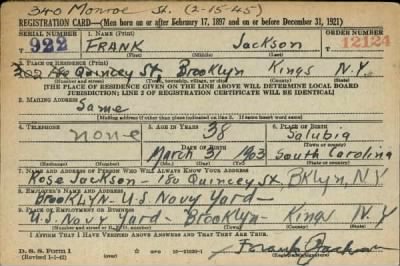 340 Monroe St. (2-15-45)
REGISTRATION CARD—(Men born on or after February 17, 1897 and on or before December 31, 1921)
SERIAL NUMBER 1. NAME (Print) ORDER NUMBER
U 922 FRANK Jackson 12124
(First) (Middle) (Last)
2. PLACE OF RESIDENCE (Print)
Quincey St. Brooklyn Kings N.Y.
(Number and street) (Town, township, village, or city) (County) (State)
[THE PLACE OF RESIDENCE GIVEN ON THE LINE ABOVE WILL DETERMINE LOCAL BOARD
JURISDICTION; LINE 2 OF REGISTRATION CERTIFICATE WILL BE IDENTICAL]
3. MAILING ADDRESS
Same
[Mailing address if other than place indicated on line 2. If same insert word same]
4. TELEPHONE 5. AGE IN YEARS 6. PLACE OF BIRTH
none 38 Salubia
DATE OF BIRTH (Town or county)
March 31 1903 South Carolina
(Exchange) (Number) (Mo.) (Day) (Yr.) (State or country)
7. NAME AND ADDRESS OF PERSON WHO WILL ALWAYS KNOW YOUR ADDRESS
Rose Jackson - 180 Quincey St, BKlyn, NY
8. EMPLOYER'S NAME AND ADDRESS
Brooklyn - U.S. Navy Yard -
9. PLACE OF EMPLOYMENT OR BUSINESS
U.S. Navy Yard - Brooklyn - Kings N.Y.
(Number and street or R. F. D. number) (Town) (County) (State)
I AFFIRM THAT I HAVE VERIFIED ABOVE ANSWERS AND THAT THEY ARE TRUE.
D. S. S. Form 1
(Revised 1-1-42) (over) Frank Jackson